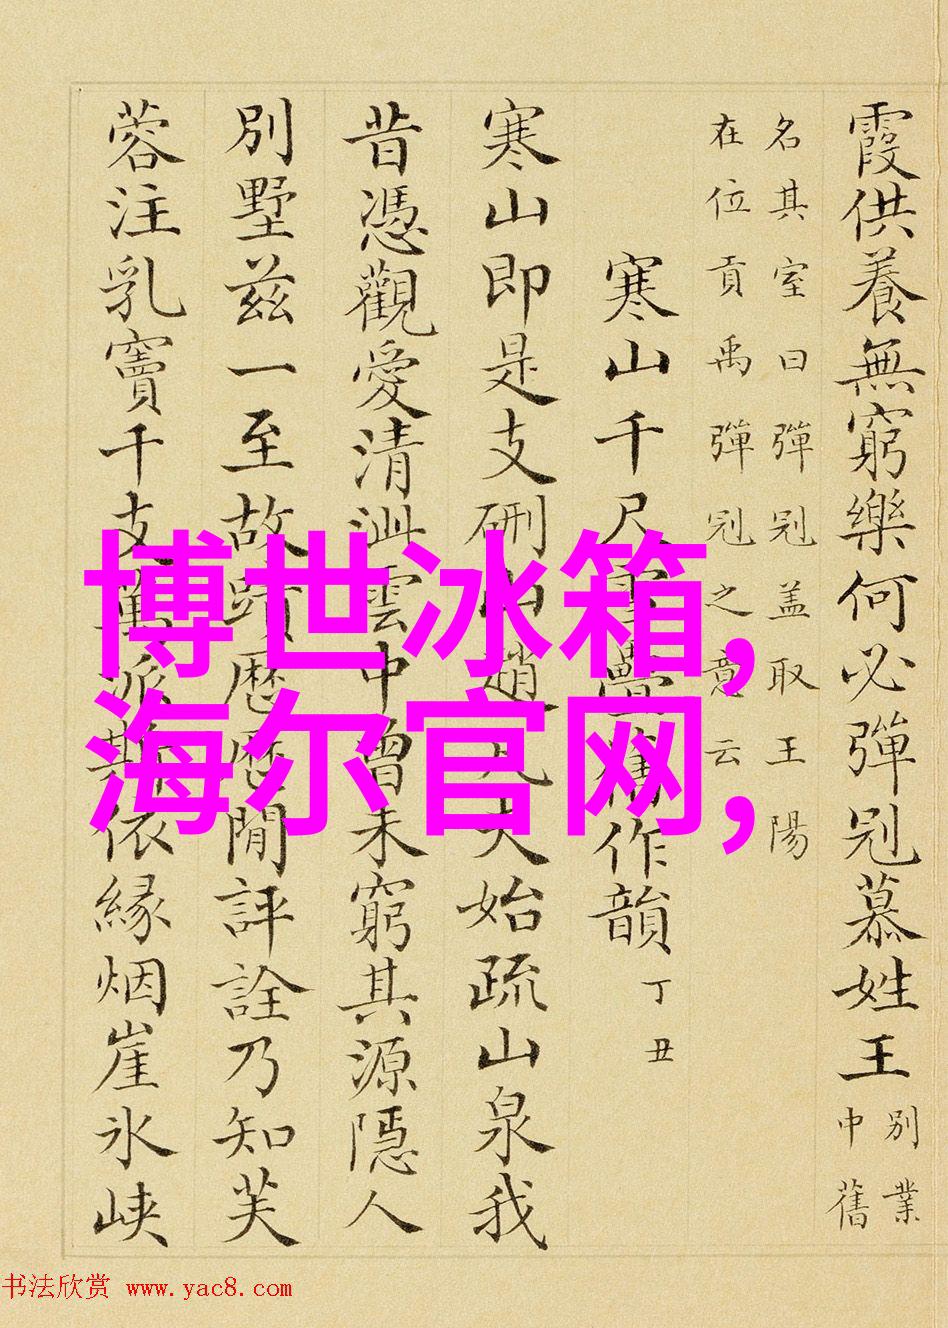 霞供養無窮樂何必彈冠慕姓王
別業
中舊
名其室曰彈冠盖取王陽
在位貢禹彈冠之意云
寒山千尺雪疊舊作韻 丁丑
寒山即是支硎山趙凡夫始疏山泉我
昔憑觀愛清泚雲中曾未窮其源隱人
別墅兹一至故蹟歷歷閒評詮乃知芙
蓉注乳竇千支萬派斯依緣烟崖氷峽
博世冰箱,
海尔官网,
书法欣赏 www.yac8.com